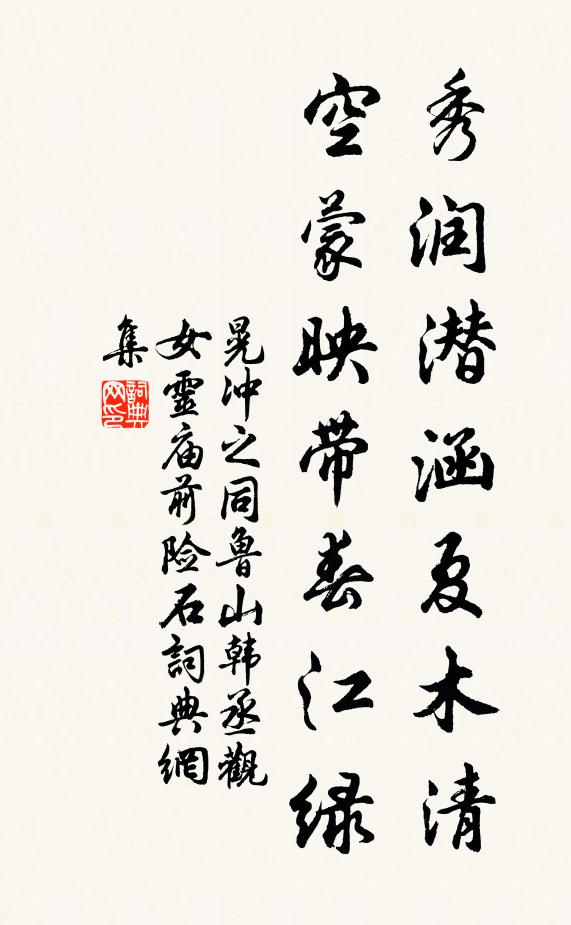 秀润潜涵夏木清
空蒙映带春江绿
晁冲之同鲁山韩丞觀
女靈庙前险石詞典網
集
詞典
网印